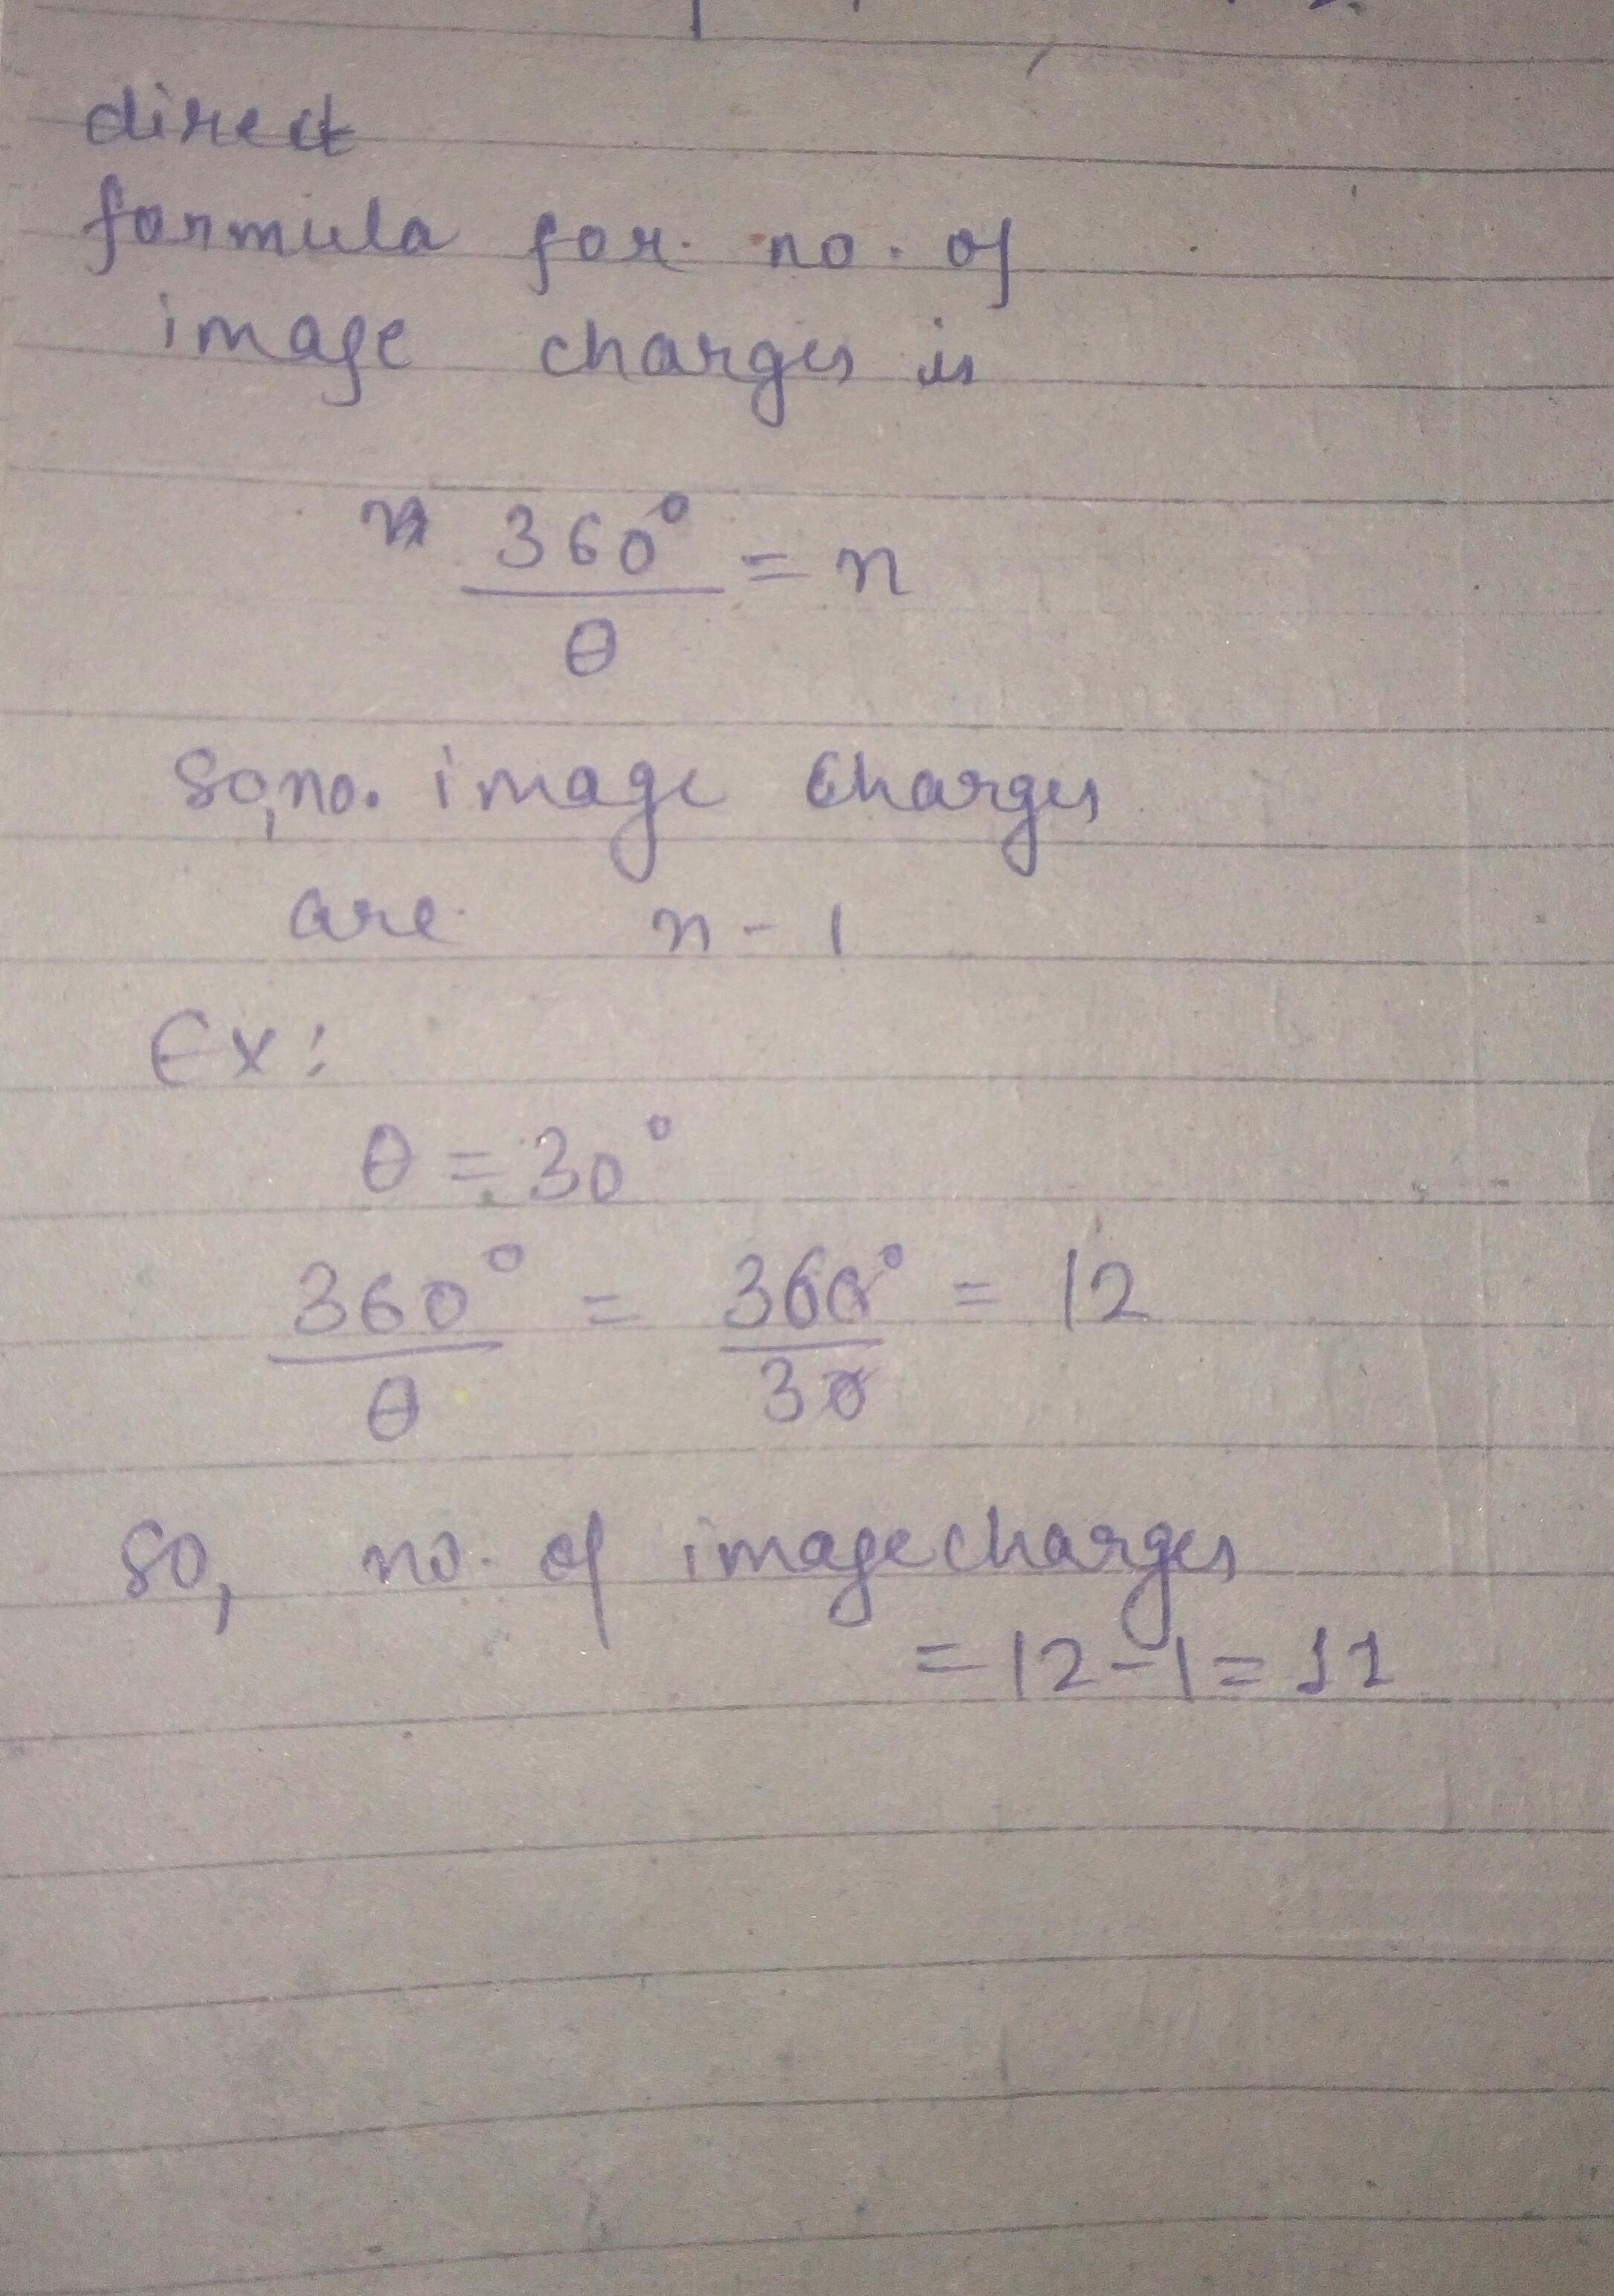 direct
formula for no. of
image charges is
360° = n
θ
so, no. image charges
are n - 1
Ex:
θ = 30°
360° = 360° = 12
θ 30
so, no. of image charges
= 12 - 1 = 11